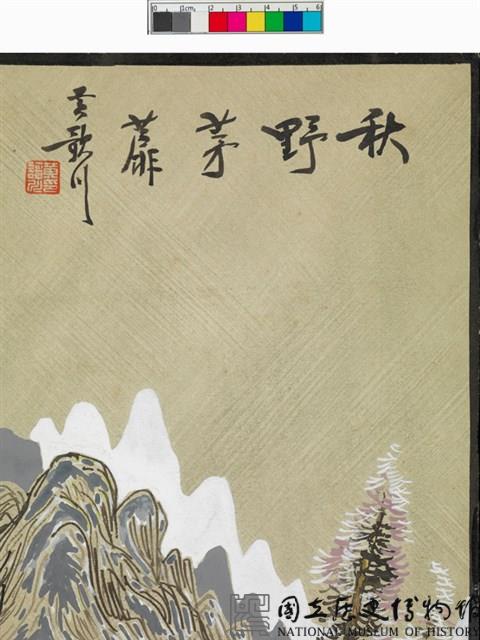 0 1cm 2 3 4 5 6
秋野茅
黃歌川
國立歷史博物館
NATIONAL MUSEUM OF HISTORY